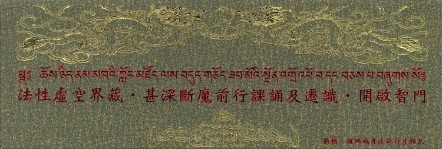 ༄༅༔ ཆོས་ཉིད་ནམ་མཁའི་ཀློང་མཛོད་ལས་བདུད་གཅོད་ཟབ་མོའི་སྔོན་འགྲོ་འཕོ་བ་དང་བཅས་པ་བཞུགས་སོ༔
法性虛空界藏．甚深斷魔前行課誦及遷識．開啟智門